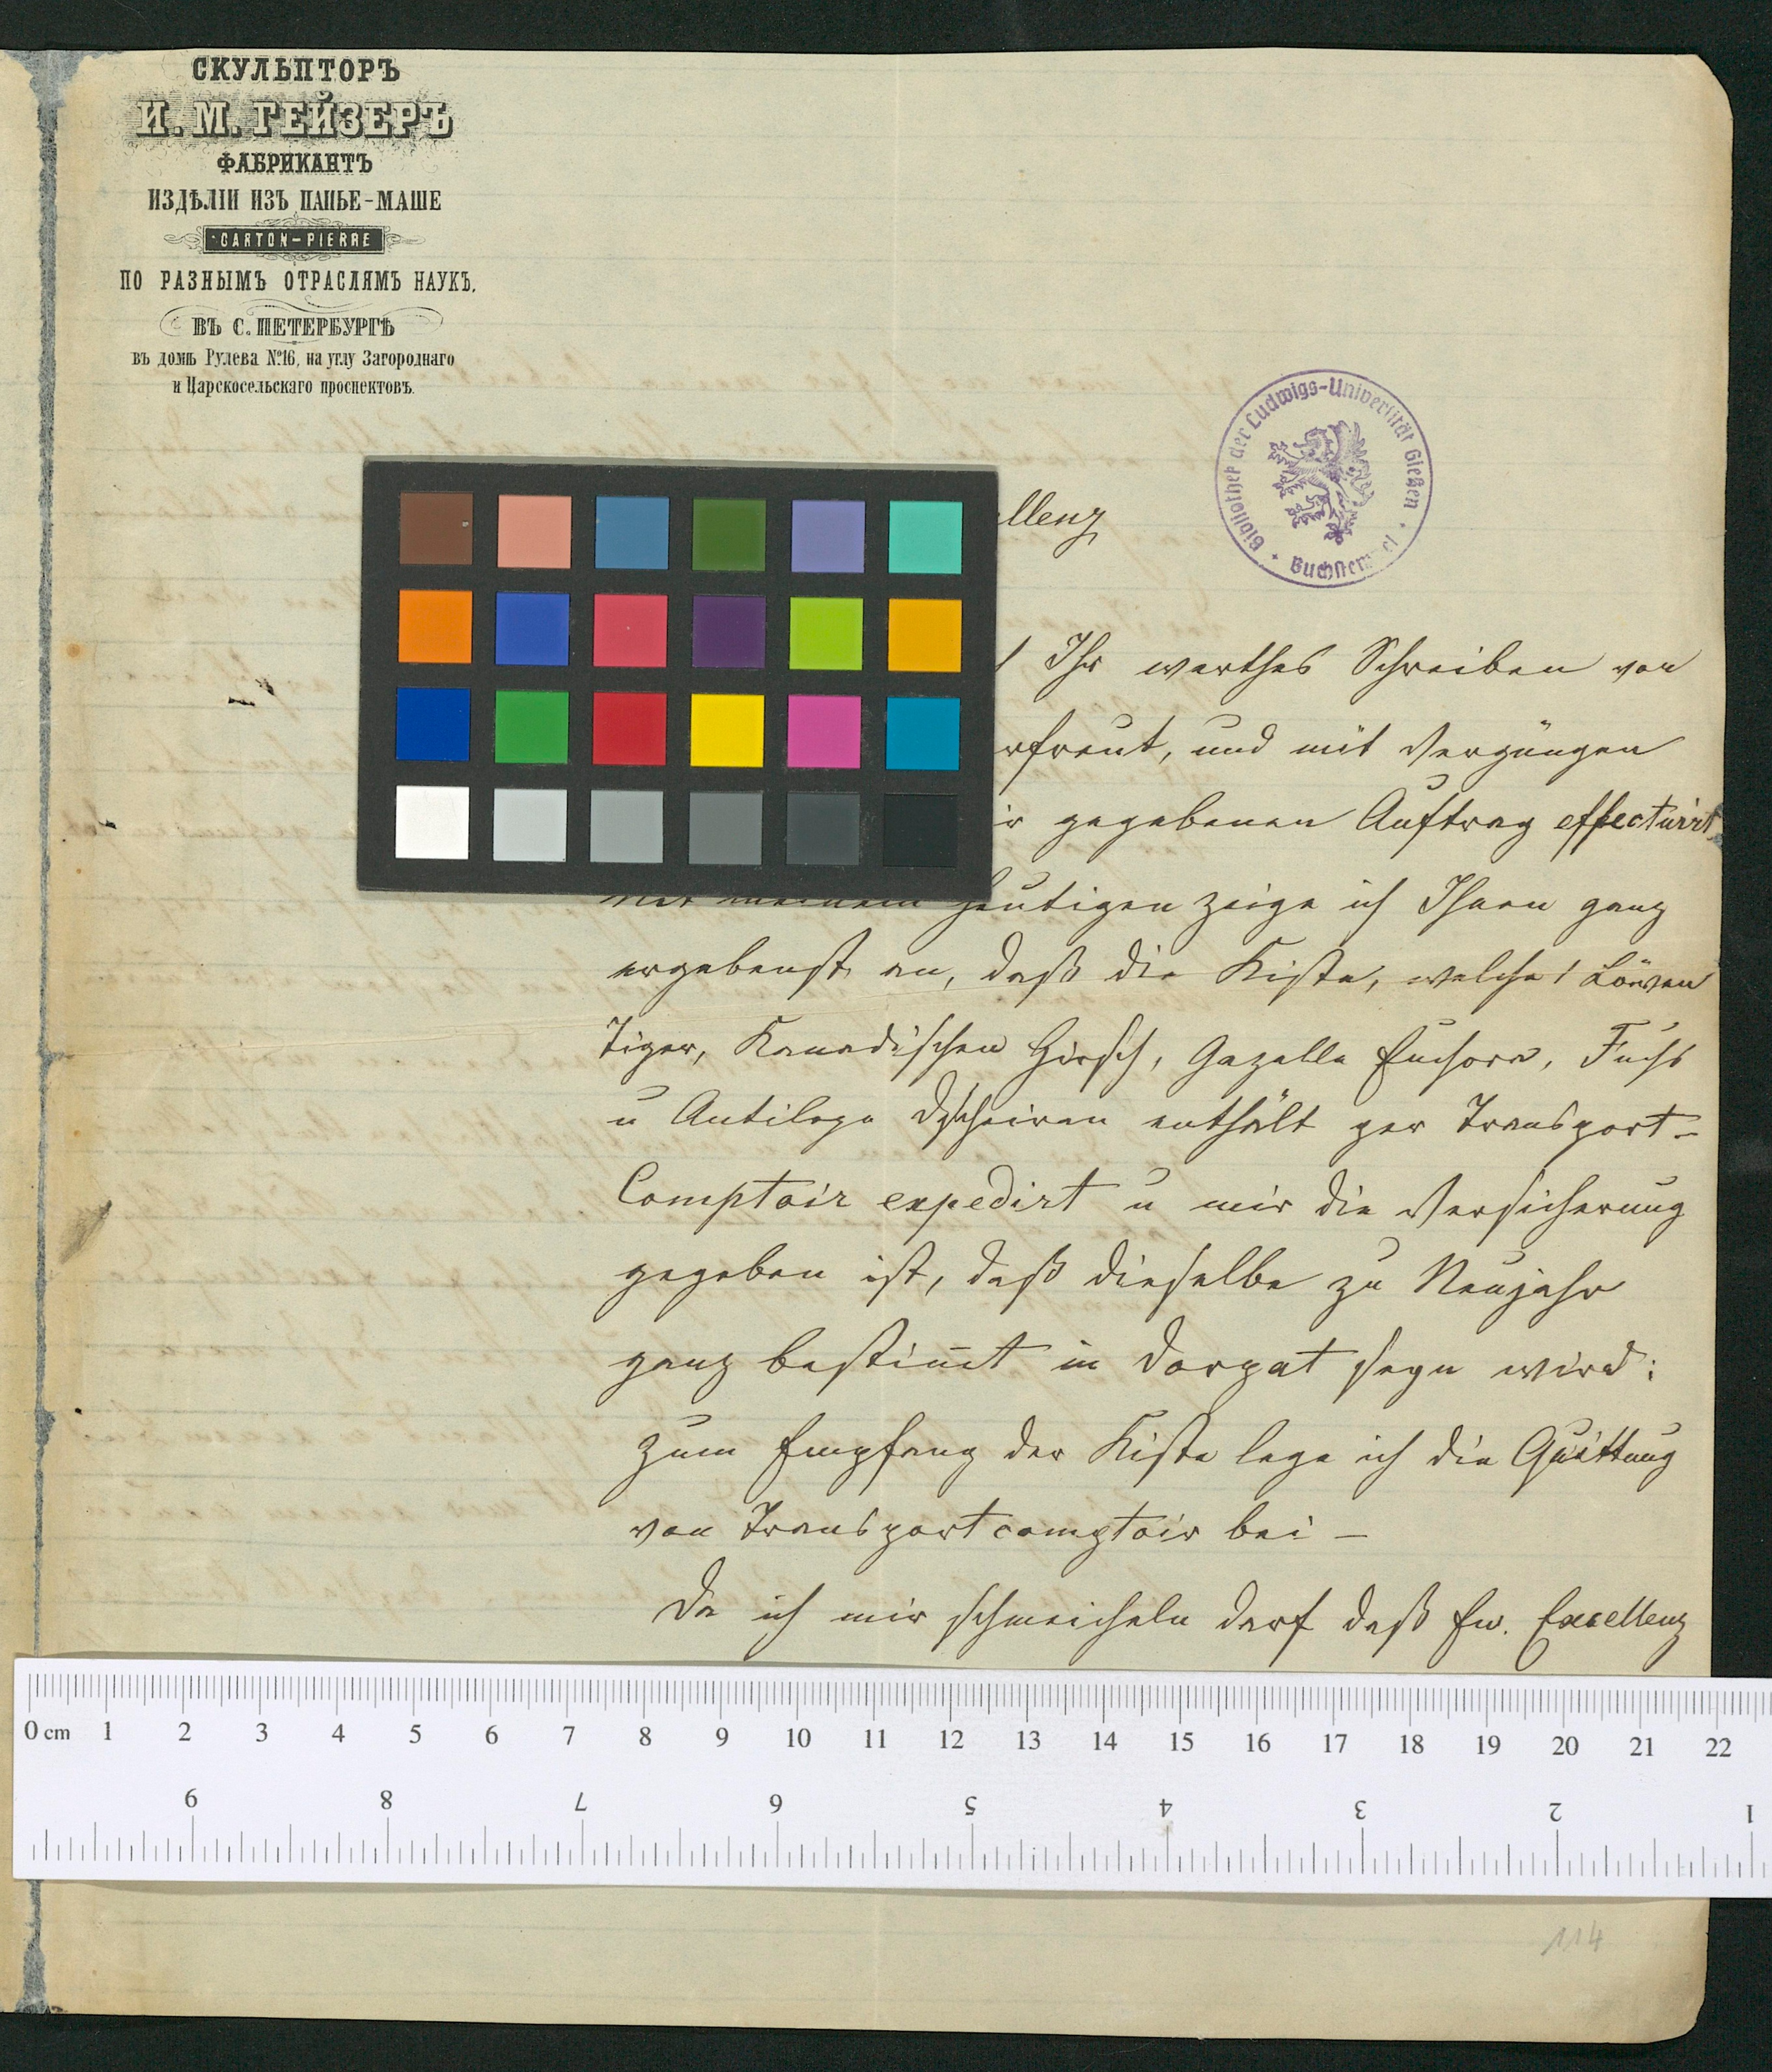 СКУЛЬПТОРЪ
И. М. ГЕЙЗЕРЪ
ФАБРИКАНТЪ
ИЗДѢЛІИ ИЗЪ ПАПЬЕ-МАШЕ
CARTON-PIERRE
ПО РАЗНЫМЪ ОТРАСЛЯМЪ НАУКЪ,
ВЪ С. ПЕТЕРБУРГѢ
въ домѣ Рулева №16, на углу Загороднаго
и Царскосельскаго проспектовъ.
Bibliothek der Ludwigs-Universität Gießen
llenz
Ihr werthes Schreiben von
rfreut, und mit Vergnügen
ir gegebenen Auftrag effectuirt
Mit meinem heutigen zeige ich Ihnen ganz
ergebenst an, daß die Kiste, welche 1 Löwen
Tiger, Kanadischen Hirsch, Gazelle, Fuchs
u Antilope enthält per Transport-
Comptoir expedirt u mir die Versicherung
gegeben ist, daß dieselbe zu Neujahr
ganz bestimt in Dorpat seyn wird:
Zum Empfang der Kiste lege ich die Quittung
von Transportcomptoir bei —
Da ich mir schmeicheln darf daß Ew. Excellenz
0 cm 1 2 3 4 5 6 7 8 9 10 11 12 13 14 15 16 17 18 19 20 21 22
9 8 7 6 5 4 3 2 1
114